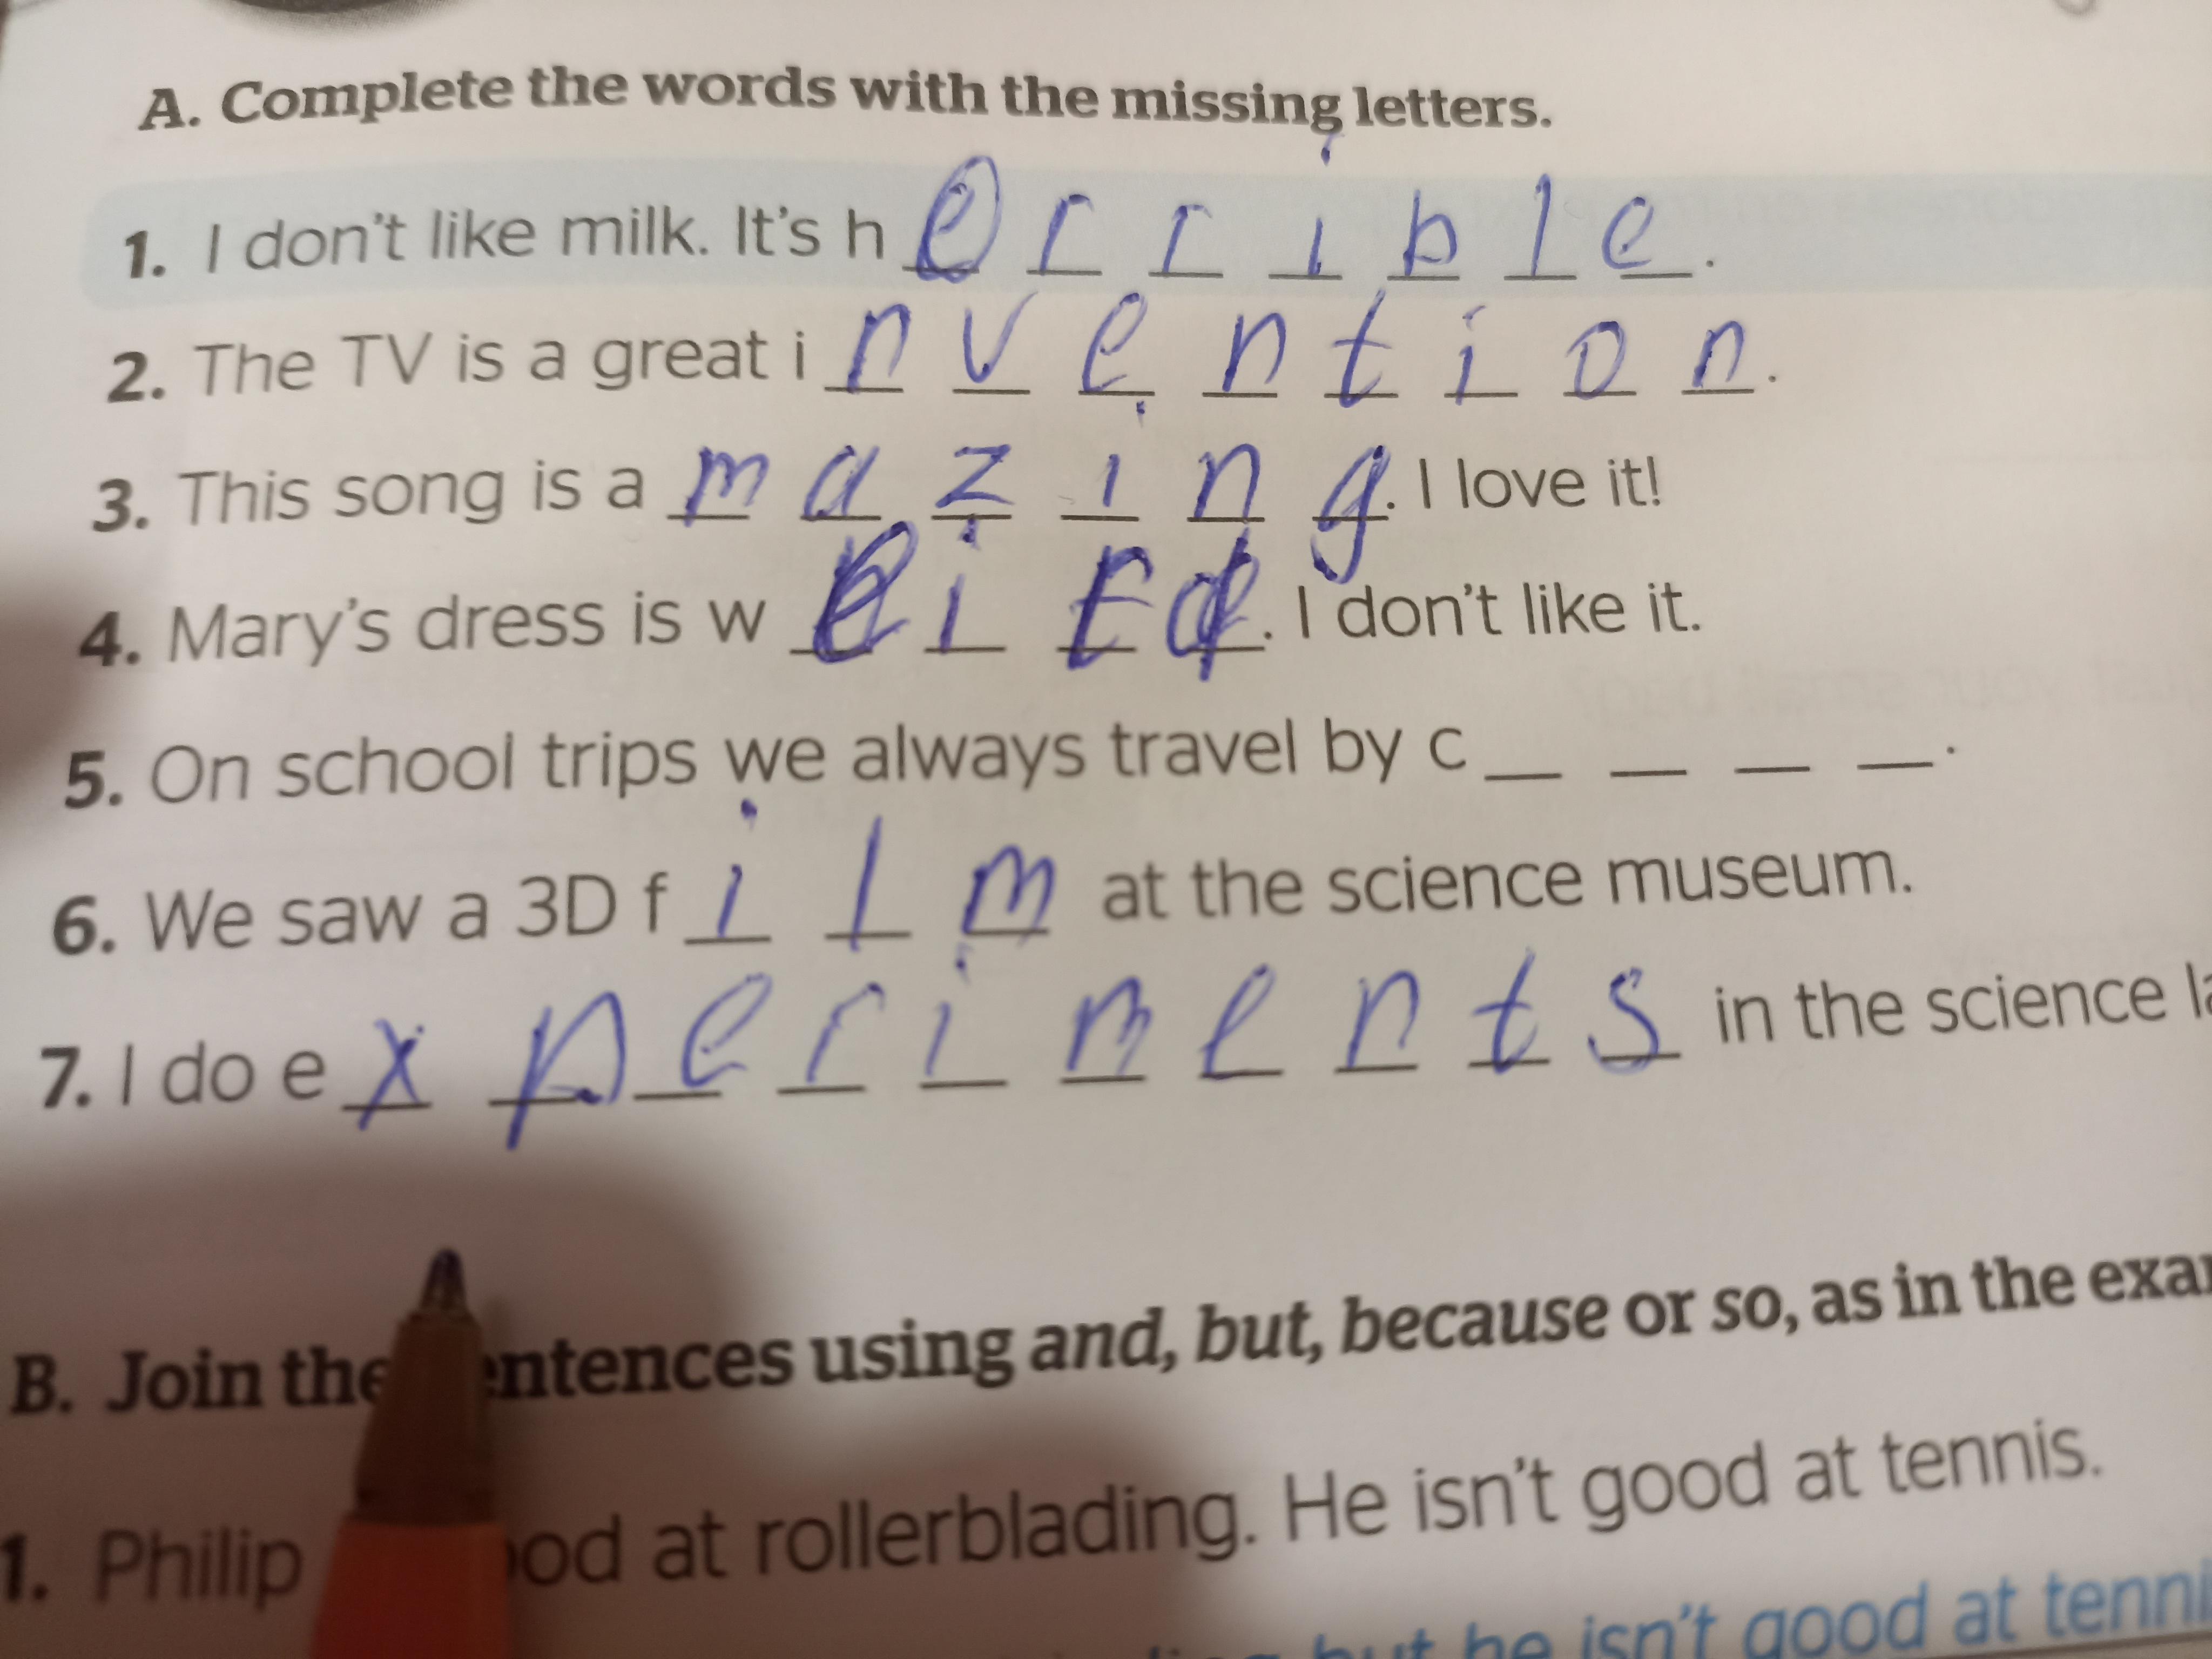 A. Complete the words with the missing letters.
1. I don't like milk. It's horrible.
2. The TV is a great invention.
3. This song is amazing. I love it!
4. Mary's dress is weird. I don't like it.
5. On school trips we always travel by c_ _ _ _.
6. We saw a 3D film at the science museum.
7. I do experiments in the science
B. Join the using and, but, because or so, as in the
1. Philip at rollerblading. He isn't good at tennis.
but he isn't good at